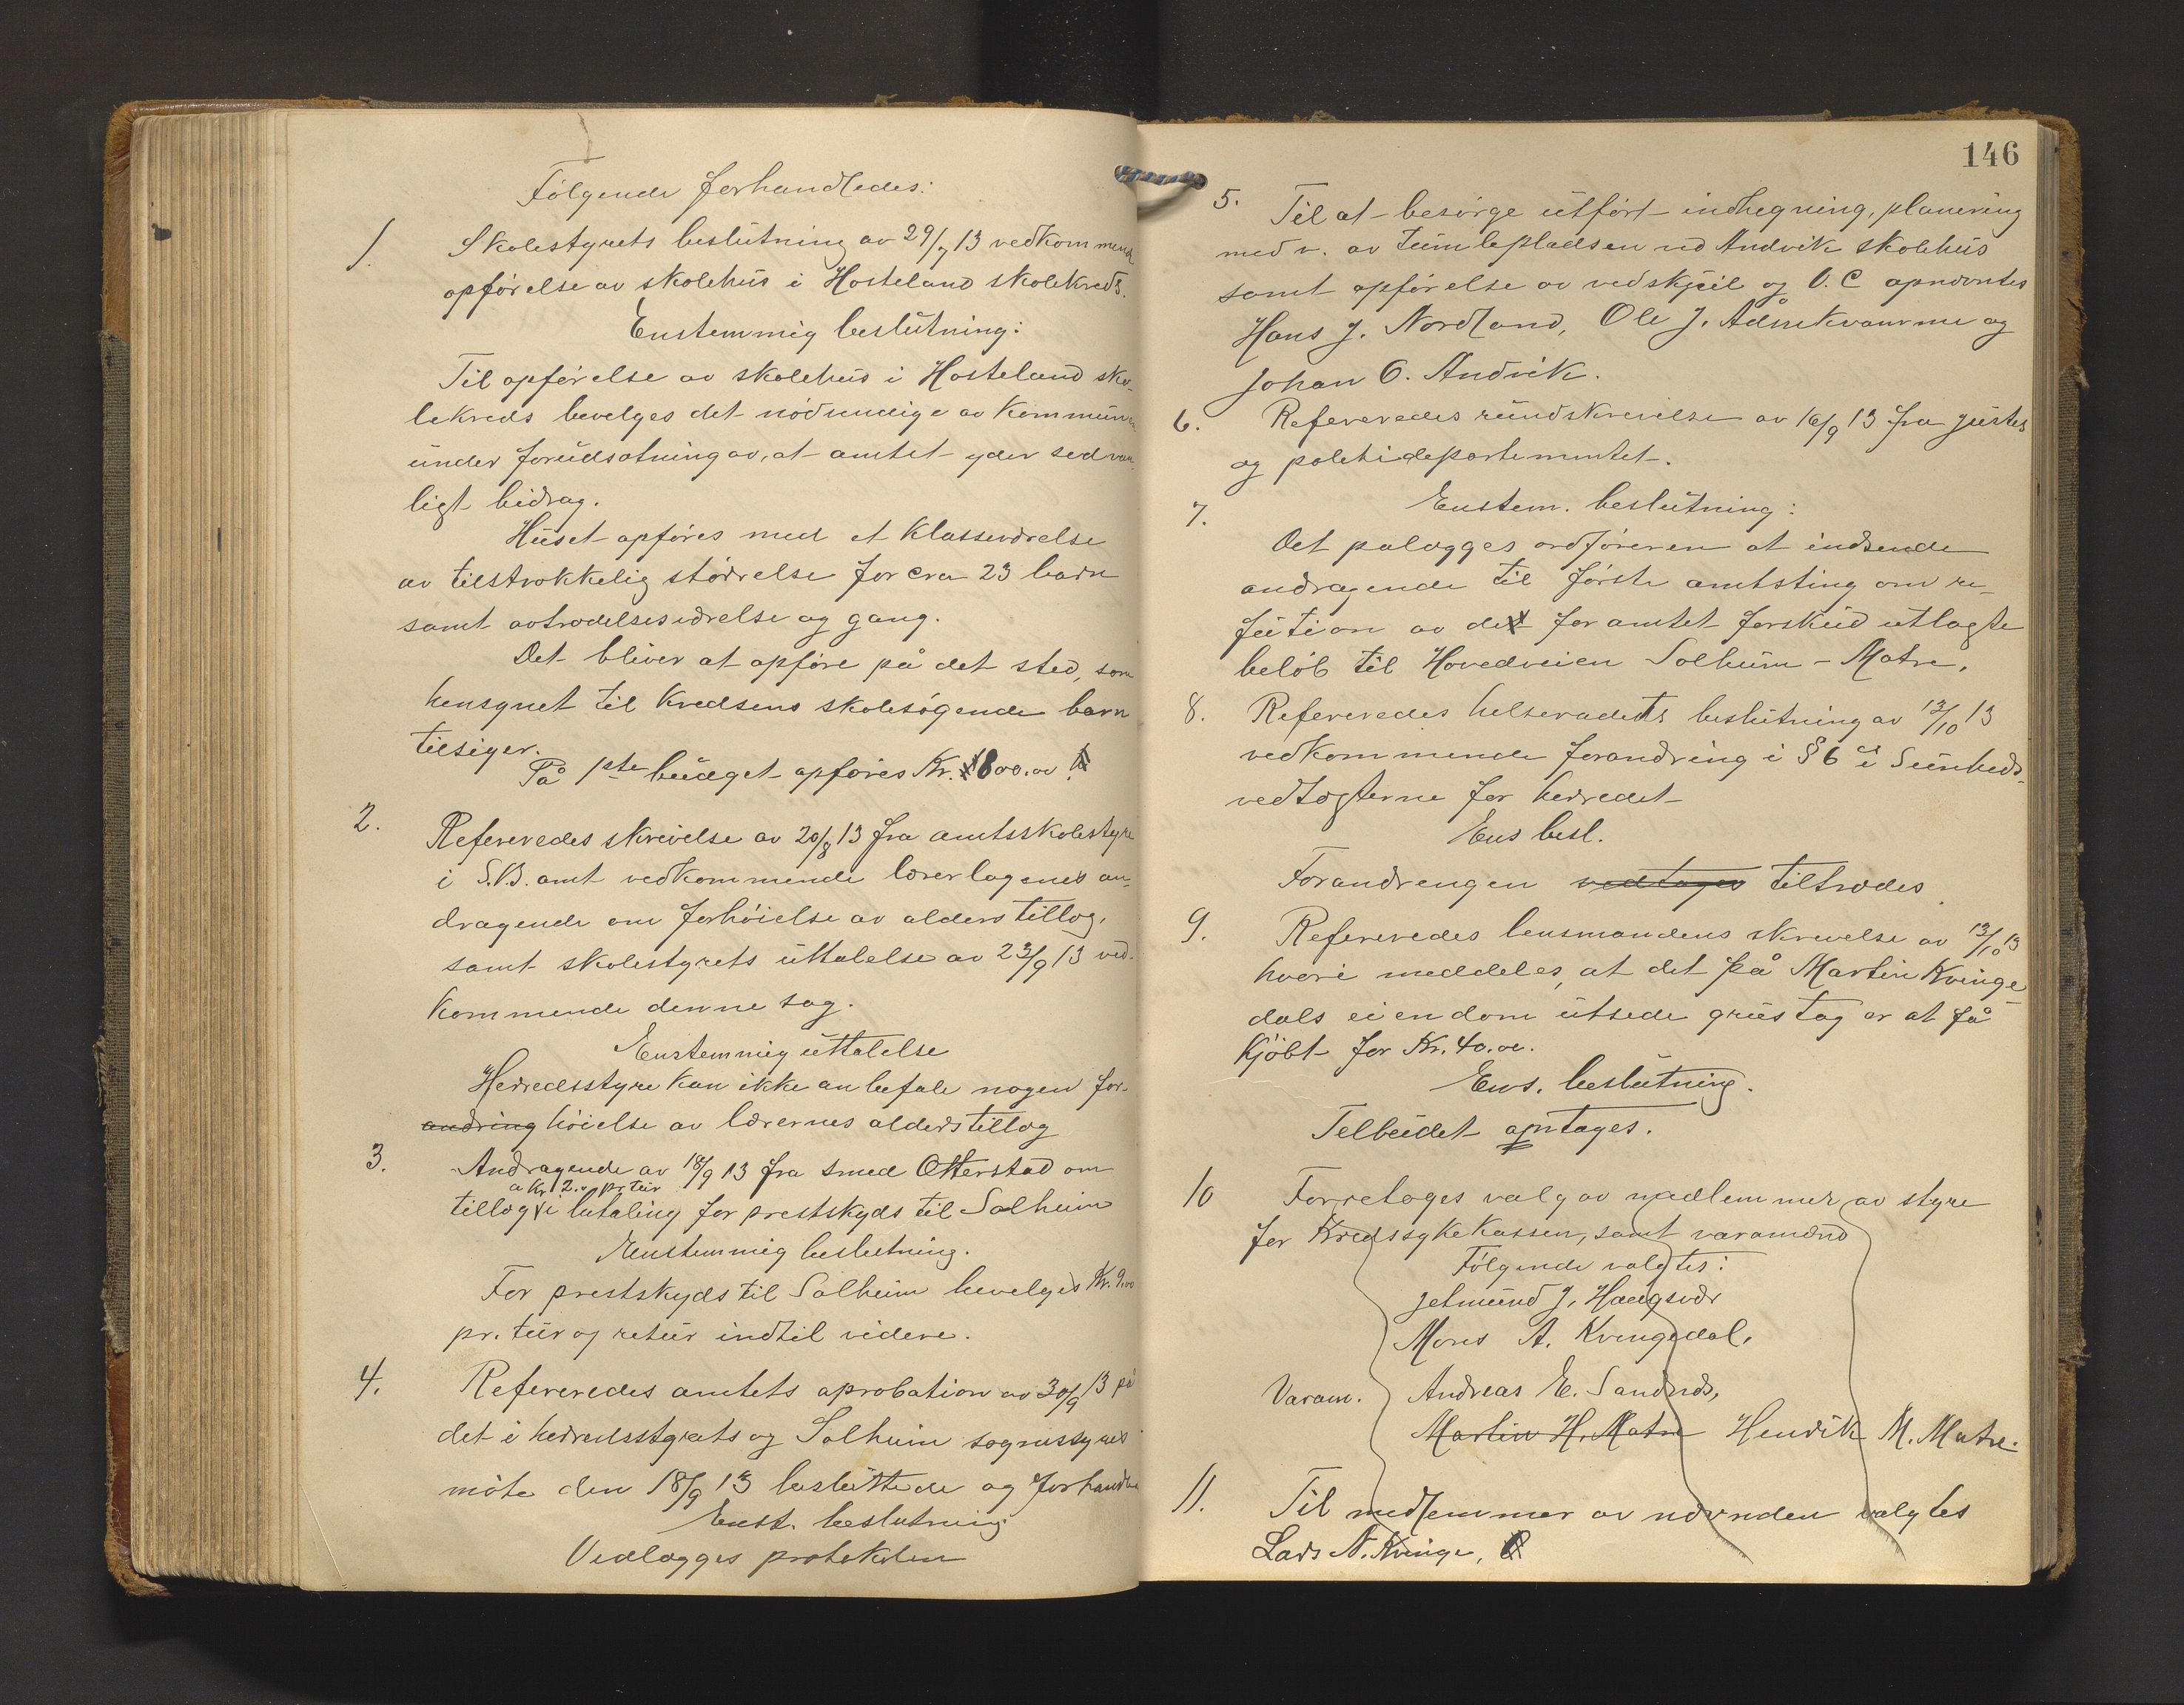 Følgende forhandledes:
1. Skolestyrets beslutning av 29/7 13 vedkommende
opførelse av skolehus i Hosteland skolekreds.
Enstemmig beslutning:
Til opførelse av skolehus i Hosteland sko-
lekreds bevelges det nødvendige av kommunen
under forudsætning av, at amtet yder sedvan-
ligt bidrag.
Huset opføres med et klasseværelse
av tilstrækkelig størrelse for cra 23 barn
samt avtrædelsesværelse og gang.
Det bliver at opføre på det sted, som
hensynet til kredsens skolesøgende barn
tilsiger.
På 1ste budget opføres Kr. 800.00
2. Refereredes skrivelse av 20/8 13 fra amtsskolestyre
i S.B. amt vedkommende lærerlagenes an-
dragende om forhøielse av alderstillæg,
samt skolestyrets uttalelse av 23/9 13 ved-
kommende denne sag.
Enstemmig uttalelse
Herredsstyre kan ikke anbefale nogen for-
andring høielse av lærernes alderstillæg
3. Andragende av 18/9 13 fra smed Otterstad om
a Kr 2.00 pr. tur
tillæg i betaling for prestskyds til Solheim
Enstemmig beslutning.
For prestskyds til Solheim bevelges Kr. 9.00
pr. tur og retur indtil videre.
4. Refereredes amtets aprobation av 30/9 13 på
det i herredsstyrets og Solheim sognestyres
møte den 18/9 13 besluttede og forhandlede
Enst. beslutning
Vedlægges protokolen
146
5. Til at besørge utført indhegning, planering
med v. av tumlepladsen ved Andvik skolehus
samt opførelse av vedskjul og O.C opnævntes
Hans J. Nordland, Ole J. Ådnekvamme og
Johan O. Andvik.
6. Refereredes rundskrivelse av 16/9 13 fra justes
og politidepartementet.
7. Enstem. beslutning:
Det pålægges ordføreren at indsende
andragende til første amtsting om re-
fution av det for amtet forskud utlagte
beløb til Hovedveien Solheim - Matre.
8. Refereredes helseradets beslutning av 13/10 13
vedkommende forandring i § 6 i Sunheds-
vedtægterne for herredet
Ens besl.
Forandrengen vedtages tiltrædes
9. Refereredes lensmandens skrivelse av 13/10 13
hvori meddeles, at det på Martin Kvinge-
dals eiendom utsede grustag er at få
kjøbt for Kr. 40.00.
Ens. beslutning.
Telbudet antages.
10 Forretoges valg av medlemmer av styre
for Kredssykekassen, samt varamænd
Følgende valgtes:
Jetmund J. Haugsvær
Mons A. Kvingedal.
Varam. Andreas E. Sandnæs,
Martin H. Matre Henrik M. Matre.
11. Til medlemmer av nævnden valgtes
Lars N. Kvinge,